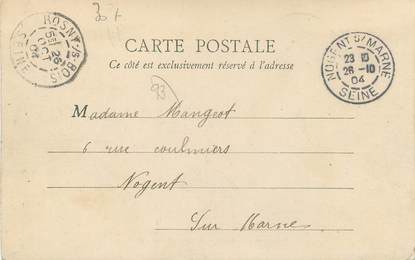 3 f
CARTE POSTALE
Ce côté est exclusivement réservé à l'adresse
ROSNY-S-BOIS
5E
26
OCT
04
SEINE
NOGENT S/MARNE
23 10
26-10
04
SEINE
93
Madame Mangeot
6 rue coulmiers
Nogent
Sur Marne